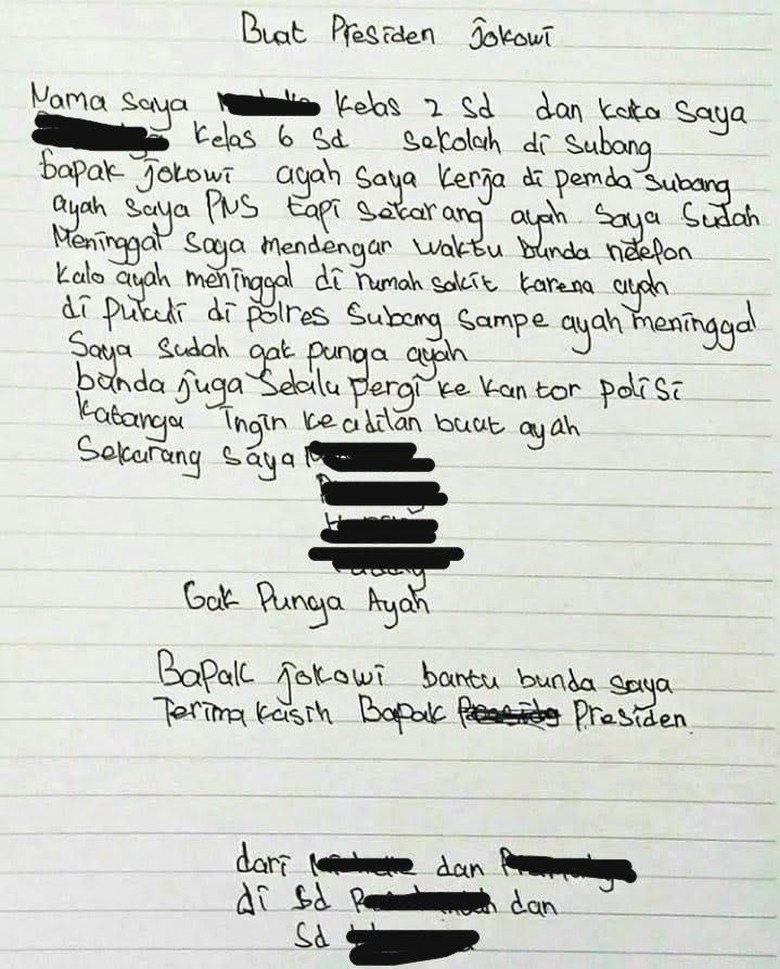 Buat Presiden jokowi
Nama saya kelas 2 Sd dan kaka Saya
kelas 6 Sd sekolah di Subang
bapak jokowi ayah saya kerja di pemda Subang
ayah saya PNS tapi sekarang ayah saya Sudah
Meninggal Saya mendengar waktu bunda nelefon
kalo ayah meninggal di rumah sakit karena ayah
di pukuli di polres Subang sampe ayah meninggal
Saya Sudah gak punga ayah
banda juga Selalu pergi ke kantor polisi
katanga ingin keadilan buat ayah
Sekarang saya
Gak Punga Ayah
Bapak jokowi bantu bunda saya
Terima kasih Bapak Presiden
dari dan
di Sd dan
Sd